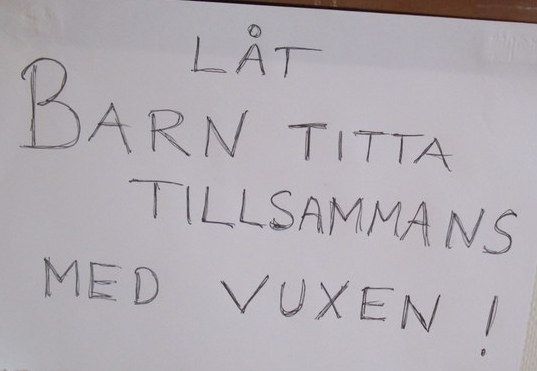 LÅT
BARN TITTA
TILLSAMMANS
MED VUXEN !